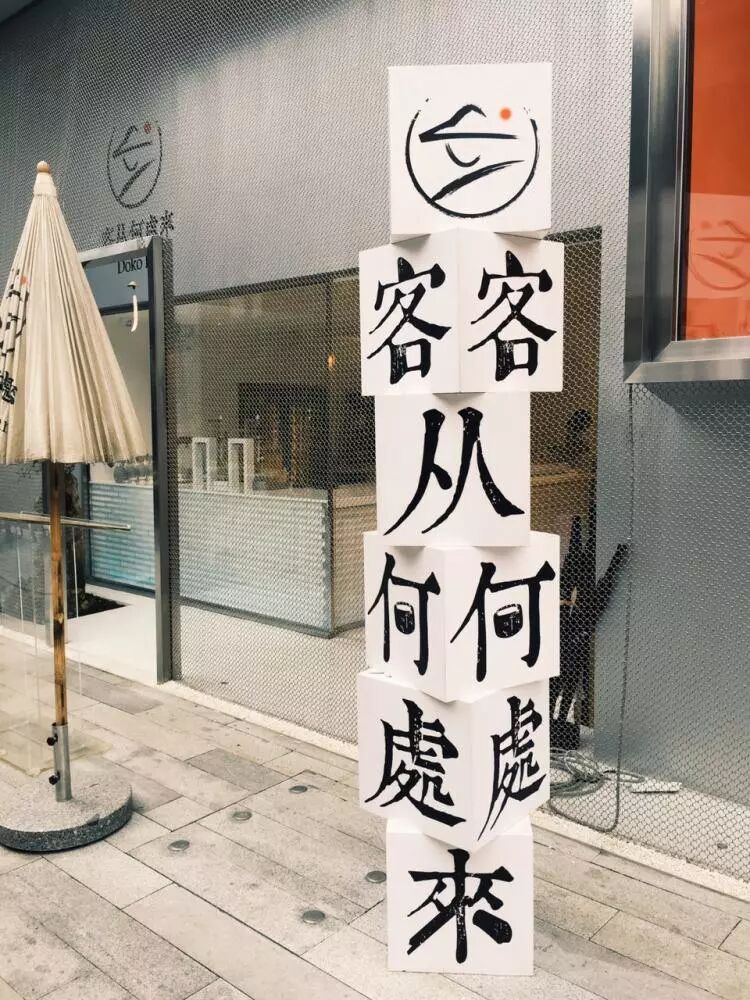 客從何處來
Doko
客 客
从
何 何
處 處
來